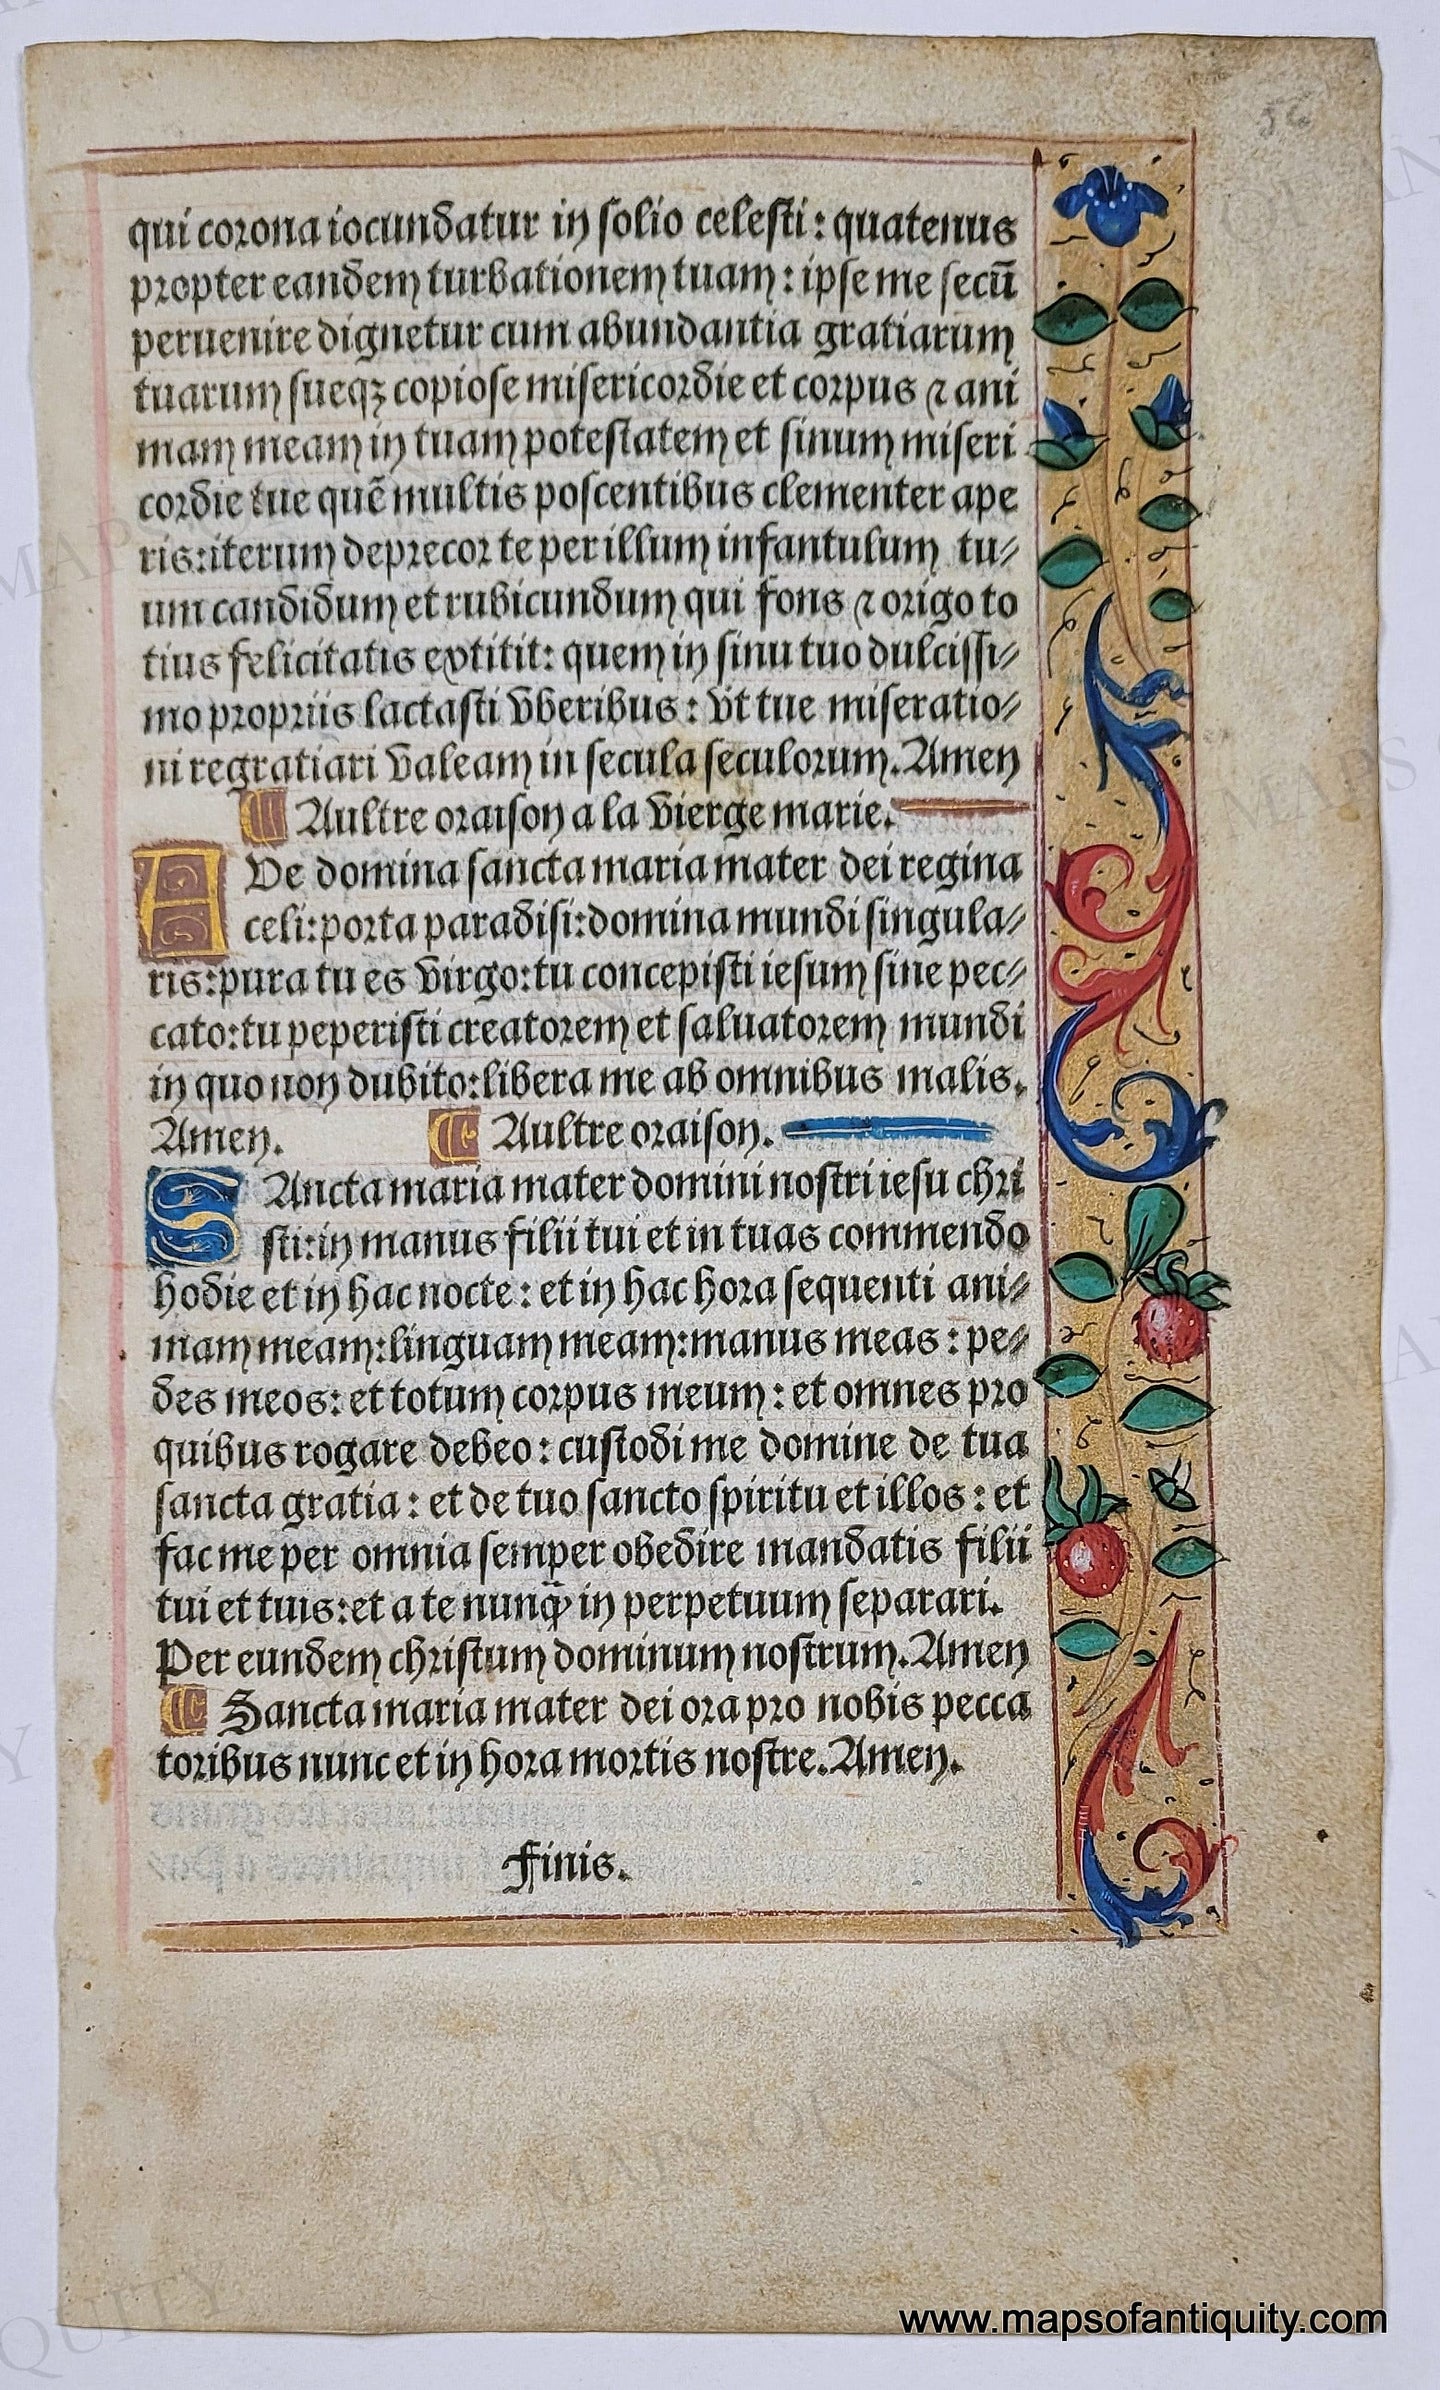 56
qui corona iocundatur in solio celesti: quatenus
propter eandem turbationem tuam: ipse me secū
peruenire dignetur cum abundantia gratiarum
tuarum sueqꝫ copiose misericordie et corpus ⁊ ani
mam meam in tuam potestatem et sinum miseri
cordie tue quē multis poscentibus clementer ape
ris: iterum deprecor te per illum infantulum tu⸗
um candidum et rubicundum qui fons ⁊ origo to
tius felicitatis extitit: quem in sinu tuo dulcissi⸗
mo propriis lactasti vberibus: vt tue miseratio⸗
ni regratiari valeam in secula seculorum. Amen
¶ Aultre oraison a la vierge marie.
AVe domina sancta maria mater dei regina
celi: porta paradisi: domina mundi singula⸗
ris: pura tu es virgo: tu concepisti iesum sine pec⸗
cato: tu peperisti creatorem et saluatorem mundi
in quo non dubito: libera me ab omnibus malis.
Amen. ¶ Aultre oraison.
SAncta maria mater domini nostri iesu chri
sti: in manus filii tui et in tuas commendo
hodie et in hac nocte: et in hac hora sequenti ani⸗
mam meam: linguam meam: manus meas: pe⸗
des meos: et totum corpus meum: et omnes pro
quibus rogare debeo: custodi me domine de tua
sancta gratia: et de tuo sancto spiritu et illos: et
fac me per omnia semper obedire mandatis filii
tui et tuis: et a te nunq̄ in perpetuum separari.
Per eundem christum dominum nostrum. Amen
¶ Sancta maria mater dei ora pro nobis pecca
toribus nunc et in hora mortis nostre. Amen.
Finis.
www.mapsofantiquity.com